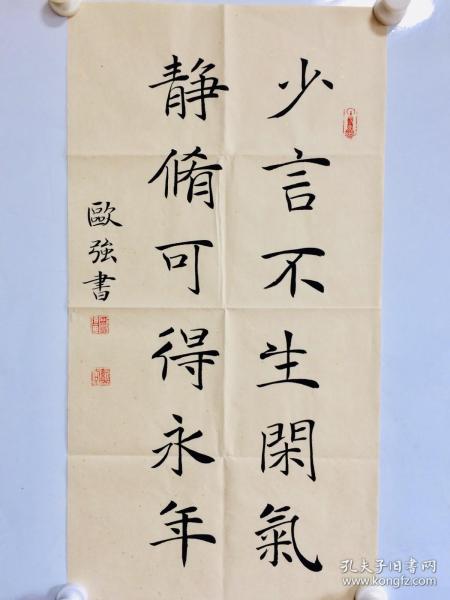 少言不生閑氣
静脩可得永年
歐強書
孔夫子旧书网
www.kongfz.com